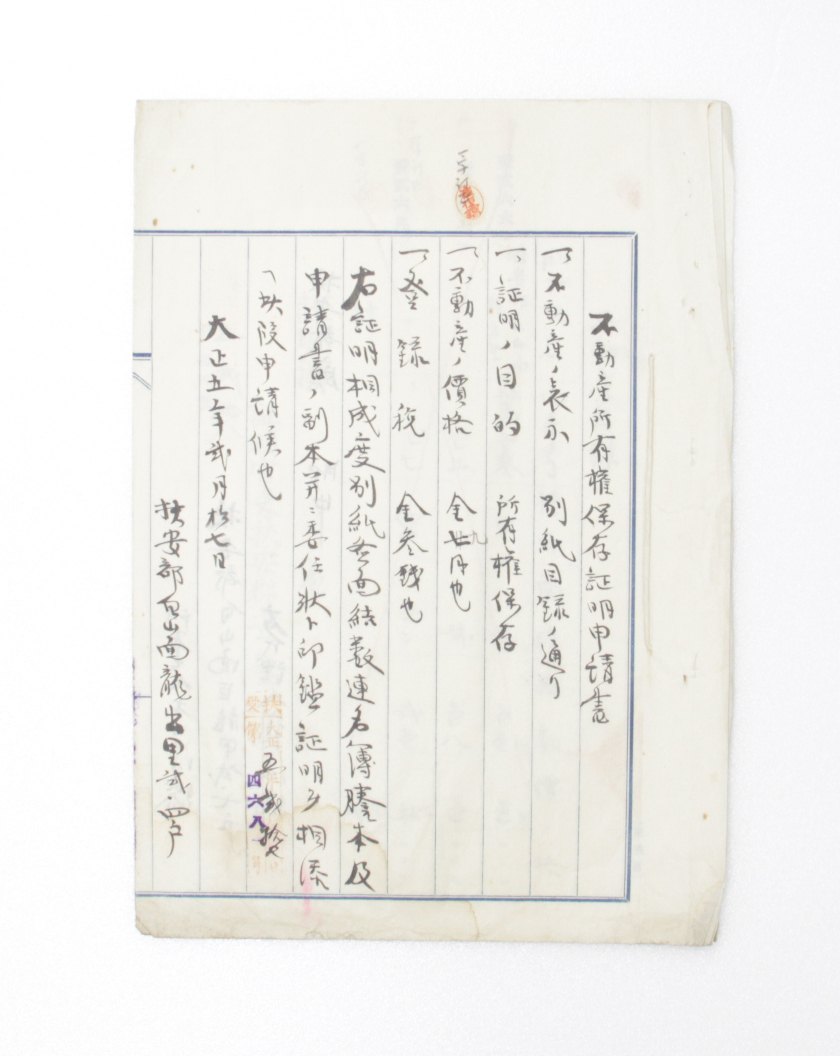 不動産所有権保存証明申請書
一、不動産ノ表示 別紙目録ノ通リ
一、証明ノ目的 所有権保存
一、不動産ノ價格 金
一、登録税 金参銭也
右証明相成度別紙 面結数連名簿謄本及
申請書ノ副本並ニ委任状ト印鑑証明ヲ相添
此段申請候也
四六八
大正五年弐月拾七日
扶安郡白山面龍出里弐 四戸